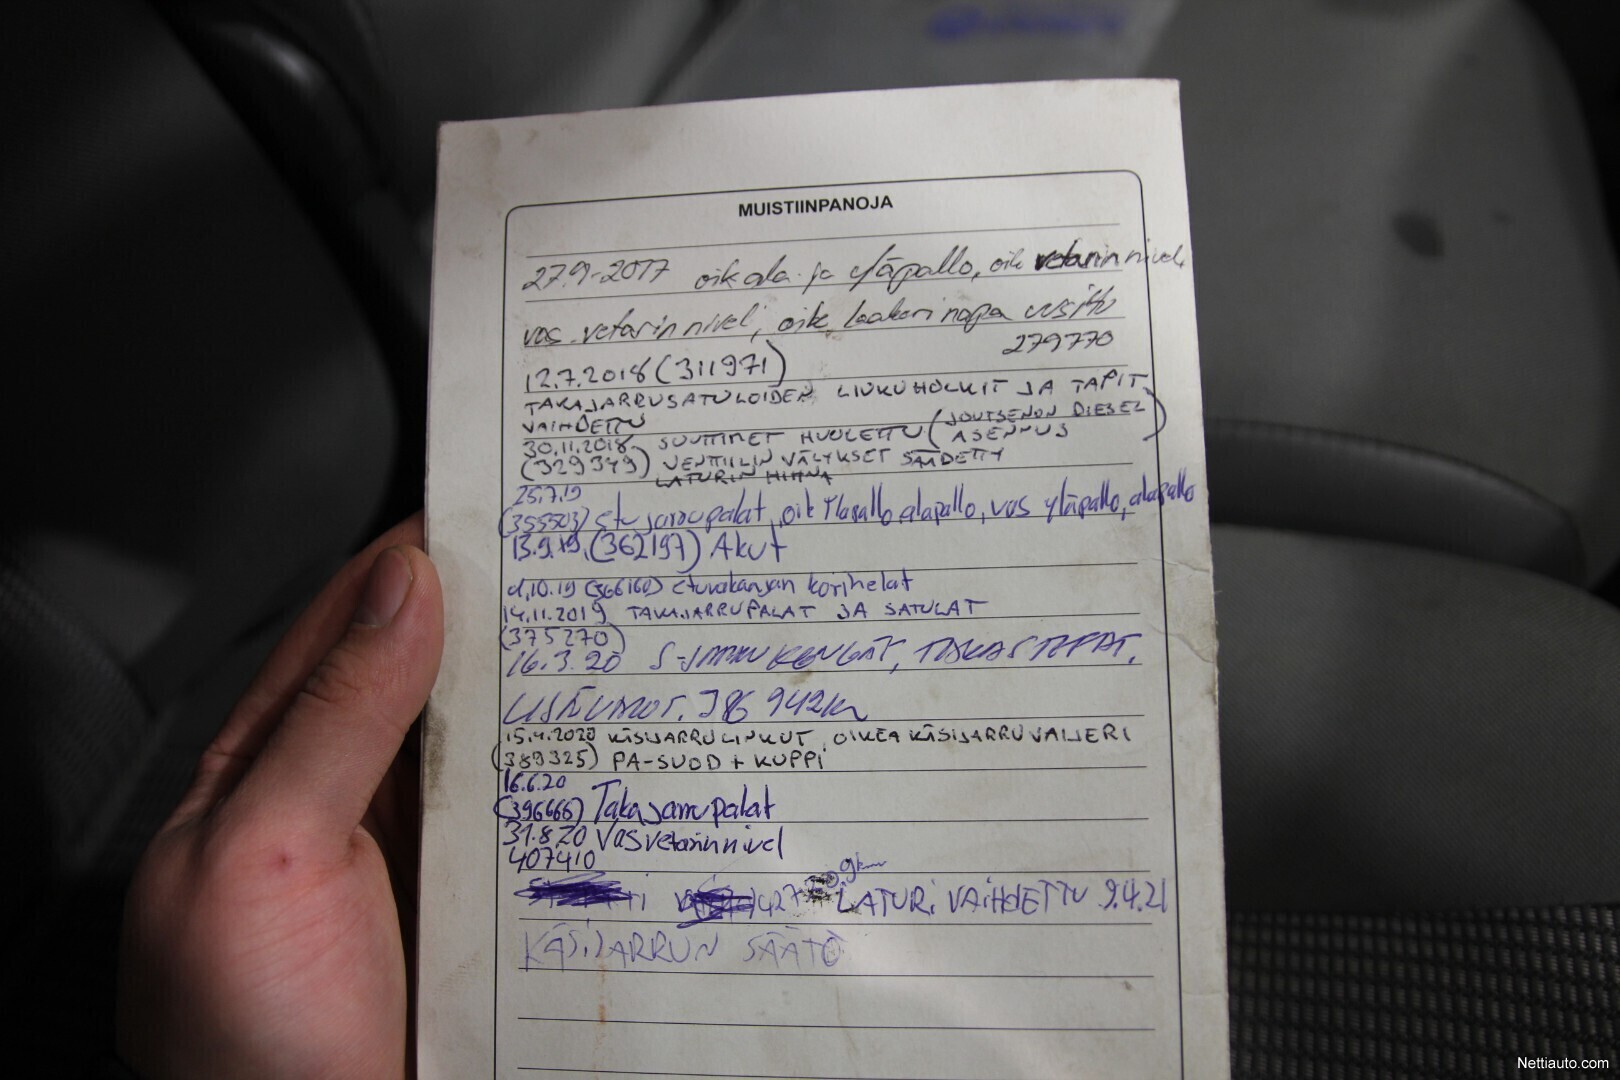 MUISTIINPANOJA
27.9-2017 oik ala- ja yläpallo, oik vetarin nivel,
vas. vetarin niveli, oik, laakeri napa uusittu
279770
12.7.2018 (311971)
TAKAJARRUSATULOIDEN LIUKUHOLKIT JA TAPIT
VAIHDETTU
30.11.2018 SUUTTIMET HUOLETTU (JOUTSENON DIESEL ASENNUS)
(329349) VENTTIILIN VÄLYKSET SÄÄDETTY
LATURIN HIHNA
25.7.19
(355503) Etujarrupalat, oik Yläpallo, alapallo, vas yläpallo, alapallo
13.9.19, (362197) Akut
10.19 (366160) etuvakaajan korihelat
14.11.2019 TAKAJARRUPALAT JA SATULAT
(375270)
16.3.20 S-JARRUKENGÄT,
LISÄVALOT. 386 942km
15.4.2020 KÄSIJARRULINKUT, OIKEA KÄSIJARRUVAIJERI
(389325) PA-SUOD + KUPPI
16.6.20
(396666) Takajarrupalat
31.8.20 Vas vetarin nivel
407410
LATURI VAIHDETTU 9.4.21
KÄSIJARRUN SÄÄTÖ
Nettiauto.com